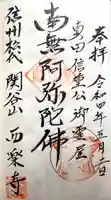 奉拝 令和四年五月二日
真田信重公御霊屋
南無阿弥陀佛
信州松代 関谷山 西楽寺